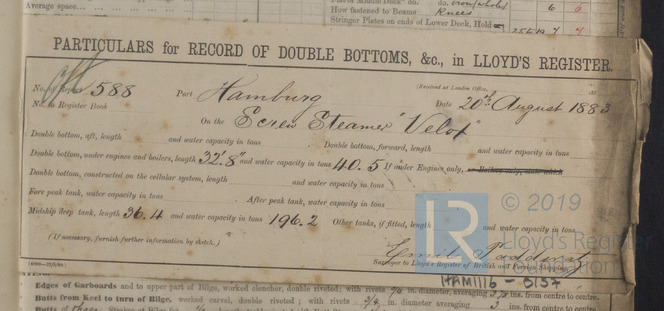 Average space,
How fastened to Beams
Knees
6 6
Stringer Plates on ends of Lower Deck, Hold
7 7
PARTICULARS for RECORD OF DOUBLE BOTTOMS, &c., in LLOYD'S REGISTER.
(Received at London Office,
No. 588 Port Hamburg Date 20th August 1883
No. in Register Book
On the Screw Steamer "Velox"
Double bottom, aft, length and water capacity in tons Double bottom, forward, length and water capacity in tons
Double bottom, under engines and boilers, length 32'.8" and water capacity in tons 40.5 If under Engines only,
Double bottom, constructed on the cellular system, length and water capacity in tons
Fore peak tank, water capacity in tons After peak tank, water capacity in tons
Midship deep tank, length 36.4 and water capacity in tons 196.2 Other tanks, if fitted, length and water capacity in tons
(If necessary, furnish further information by sketch.)
Surveyor to Lloyd's Register of British and Foreign Shipping.
© 2019
LR
Lloyd's Register
Foundation
HAM1116 - 0157
Edges of Garboards and to upper part of Bilge, worked clencher, double riveted; with rivets in. diameter, averaging ins. from centre to centre.
Butts from Keel to turn of Bilge, worked carvel, double riveted; with rivets in. diameter averaging 3 ins. from centre to centre.